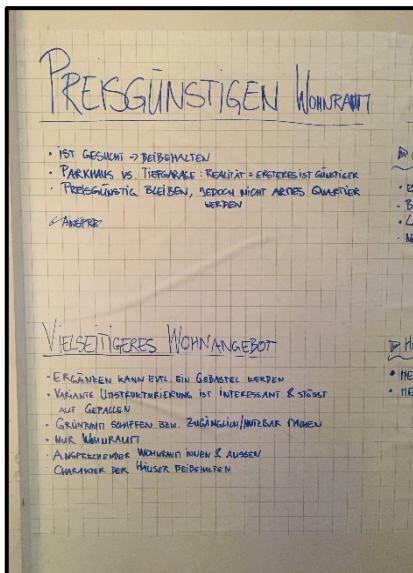 PREISGÜNSTIGEN WOHNRAUM
• IST GESUCHT → BEIBEHALTEN
• PARKHAUS VS. TIEFGARAGE: REALITÄT = ERSTERES IST GÜNSTIGER
• PREISGÜNSTIG BLEIBEN, JEDOCH NICHT ARMES QUARTIER
WERDEN
VIELSEITIGERES WOHNANGEBOT
• ERGÄNZEN KANN EVTL. EIN GEBASTEL WERDEN
• VARIANTE UMSTRUKTURIERUNG IST INTERESSANT & STÖSST
AUF GEFALLEN
• GRÜNRAUM SCHAFFEN BZW. ZUGÄNGLICH/NUTZBAR MACHEN
• NUR WOHNRAUM
• ANSPRECHENDER WOHNRAUM INNEN & AUSSEN
CHARAKTER DER HÄUSER BEIBEHALTEN